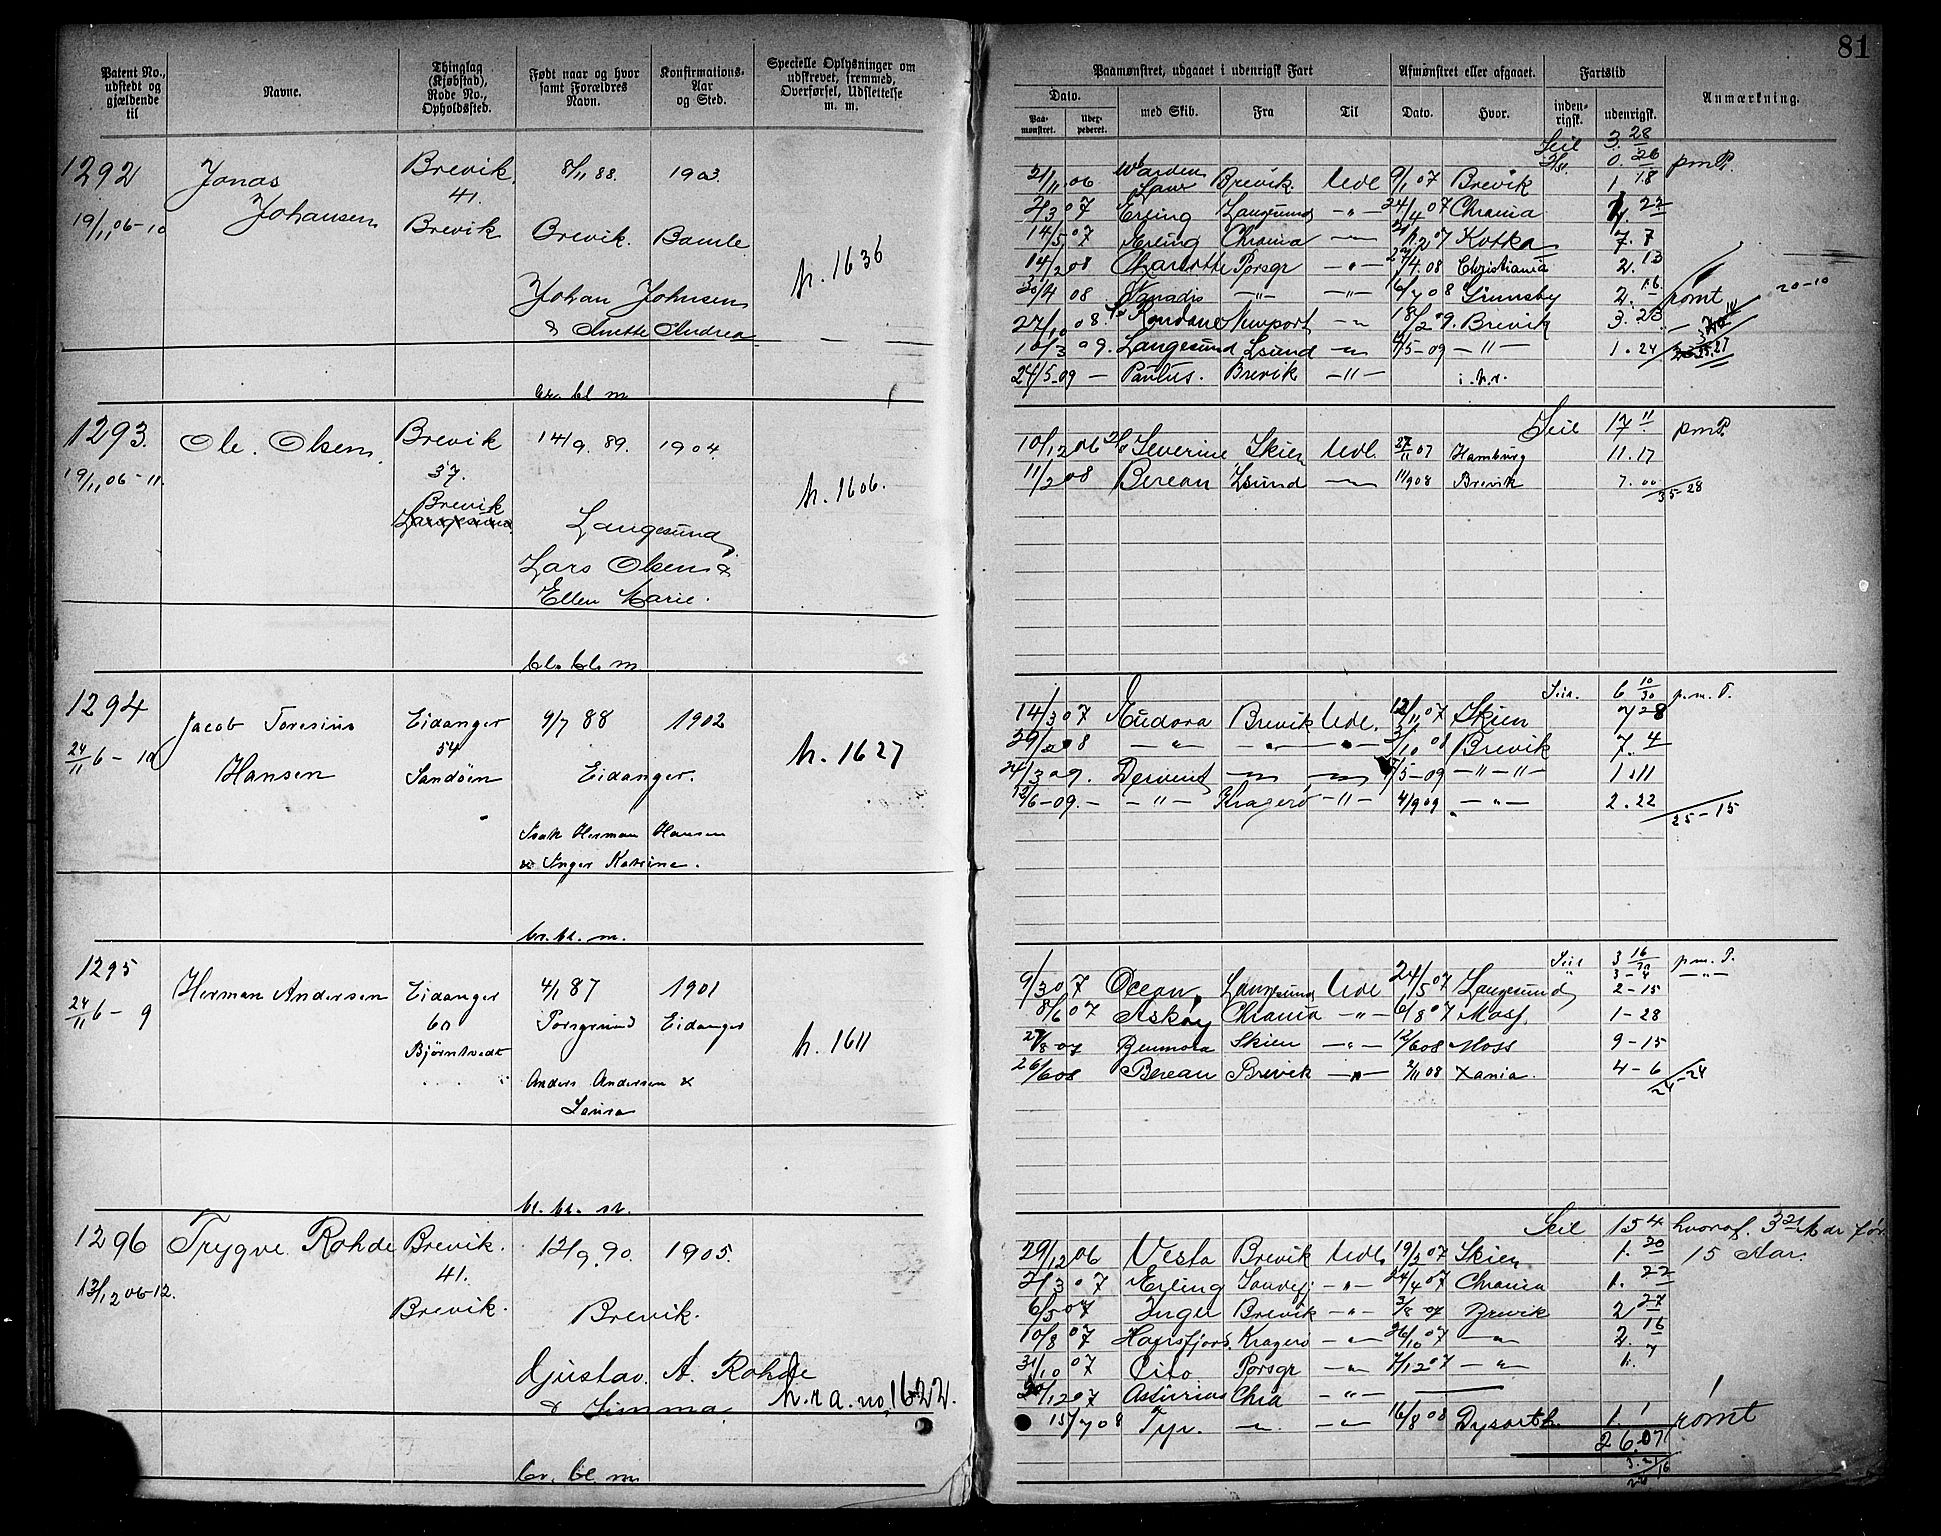 81
Patent No., udstedt og gjældende til
Navne.
Thinglag (Kjøbstad), Rode No., Opholdssted.
Født naar og hvor samt Forældres Navn.
Konfirmations-Aar og Sted.
Specielle Oplysninger om udskrevet, fremmed, Overførsel, Udslettelse m. m.
Paamønstret, udgaaet i udenrigsk Fart
Afmønstret eller afgaaet.
Fartstid
Anmærkning.
Dato.
Paa-mønstret.
med Skib.
Fra
Til
Dato.
Hvor.
inden-rigsk.
udenrigsk.
1292 Jonas Brevik. 8/11 88. 1903.
Johansen 41.
19/11 06-10 Brevik Brevik. Bamle
h. 1636
Johan Johnsen
& Anette Andrea
br. bl m
Seil 3. 28
0. 26 pm P.
21/11 06 Brevik. Udl 9/1 07 Brevik 1. 18
2/3 07 Erling Langesund -"- 24/4 07 Chrania 22
14/5 07 Erling Chrania Kotka 7. 7
14/2 08 Charlotte Porsgr -"- 4.08 Christiania 2. 13
30/4 08 Vanadis -"- -"- 6/7 08 Grimsby 2. 16 rømt 20-10
27/10 08. Rondane Newport -"- 18/2 09. Brevik 3. 23
10/3 09. Langesund Lsund -"- 5-09 -"- 1. 24
24/5-09 - Paulus. Brevik -"- i.h.r.
1293. Ole. Olsen. Brevik 14/9. 89. 1904
37.
19/11 06-11. Brevik
Langesund.
h. 1606.
Langesund
Lars Olsen &
Ellen Marie.
bl. bl. m
Seil 17 11 pm P.
10/12 06 Severine Skien Udl. 27/11 07 Hamburg 11.17
11/2 08 Berean Lsund 11/9 08 Brevik 7. 00
35-28
1294 Jacob Toresius Eidanger 9/7 88 1902
24/11 6 - 10 Hansen 54
Sandøen Eidanger.
h. 1627
Isak Herman Hansen
& Inger Katrine.
br. bl. m.
Seil. 6 10/30 p.m. P.
14/3 07 Eudora Brevik Udl. 12/11 07 Skien 7 28
29/2 08 -"- -"- -"- 10 08 Brevik 7. 4
24/3 09. Derwent -"- -"- 5-09 -"-"- 1.11
12/6-09.- -"- Kragerø -"- 4/9 09 -"- 2. 22
25-15
1295 Herman Andersen Eidanger 4/1 87 1901
24/11 6 - 9 60 Porsgrund Eidanger
Bjørntvedt
h. 1611
Anders Andersen &
Laura
bl. bl. m.
Seil 3 16 p.m. P.
" 3-4 -"-
9/3 07 Ocean. Langesund Udl 24/5 07 Langesund 2-15
8/6 07 Askøy Chrania -"- 6/8 07 Moss. 1-28
27/8 07 Benmora Skien -"- 12/6 08 Moss 9-15
26/6 08 Berean Brevik -"- 2/11 08 Xania. 4-6
24-24
1296 Trygve Rohde Brevik. 12/9. 90. 1905.
41.
13/12 06-12. Brevik. Brevik.
Gustav. A. Rohde
& Simma.
h.r a. no, 1622.
br. bl. m
Seil 15 4 hvoraf. 3 Mdr før
15 Aar.
29/12 06 Vesta Brevik Udl. 19/2 07 Skien 1. 20
2/3 07 Erling -"- 24/4 07 Chrania 1. 22
6/5 07 Inger Brevik -"- 3/8 07 Brevik 2 27
10/8 07 Kragerø -"- 26/10 07 -"- 2. 16
31/10 07 Cito Porsgr -"- 7/12 07 -"- 1. 7
12 07 Asturias Chia -"-
15/7 08 Tyr. -"- -"- 16/8 08 Dysarth. 1. 1 rømt
26.07